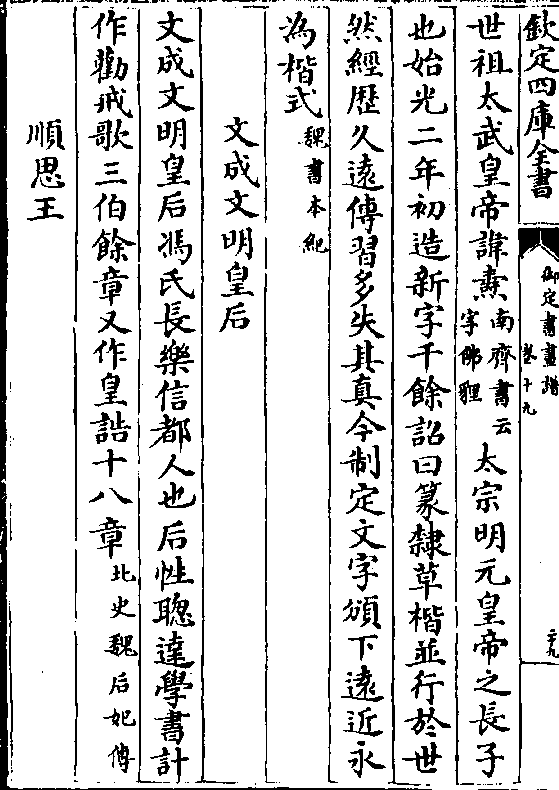 欽定四庫全書
御定書畫譜
卷十九
二十九
世祖太武皇帝諱燾南齊書云字佛貍太宗明元皇帝之長子
也始光二年初造新字千餘詔曰篆隸草楷並行於世
然經歷久遠傳習多失其真今制定文字頒下遠近永
為楷式魏書本紀
文成文明皇后
文成文明皇后馮氏長樂信都人也后性聰達學書計
作勸戒歌三伯餘章又作皇誥十八章北史魏后妃傳
順思王